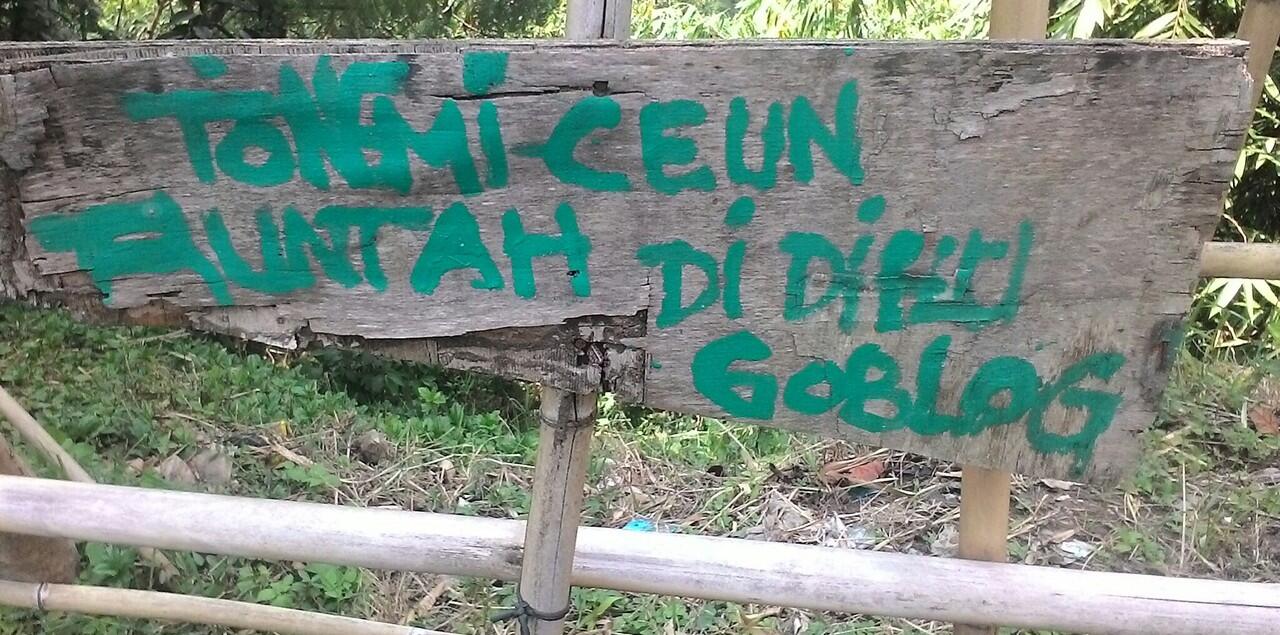 TONG MI-CEUN
RUNTAH Di DiEU
GOBLOG